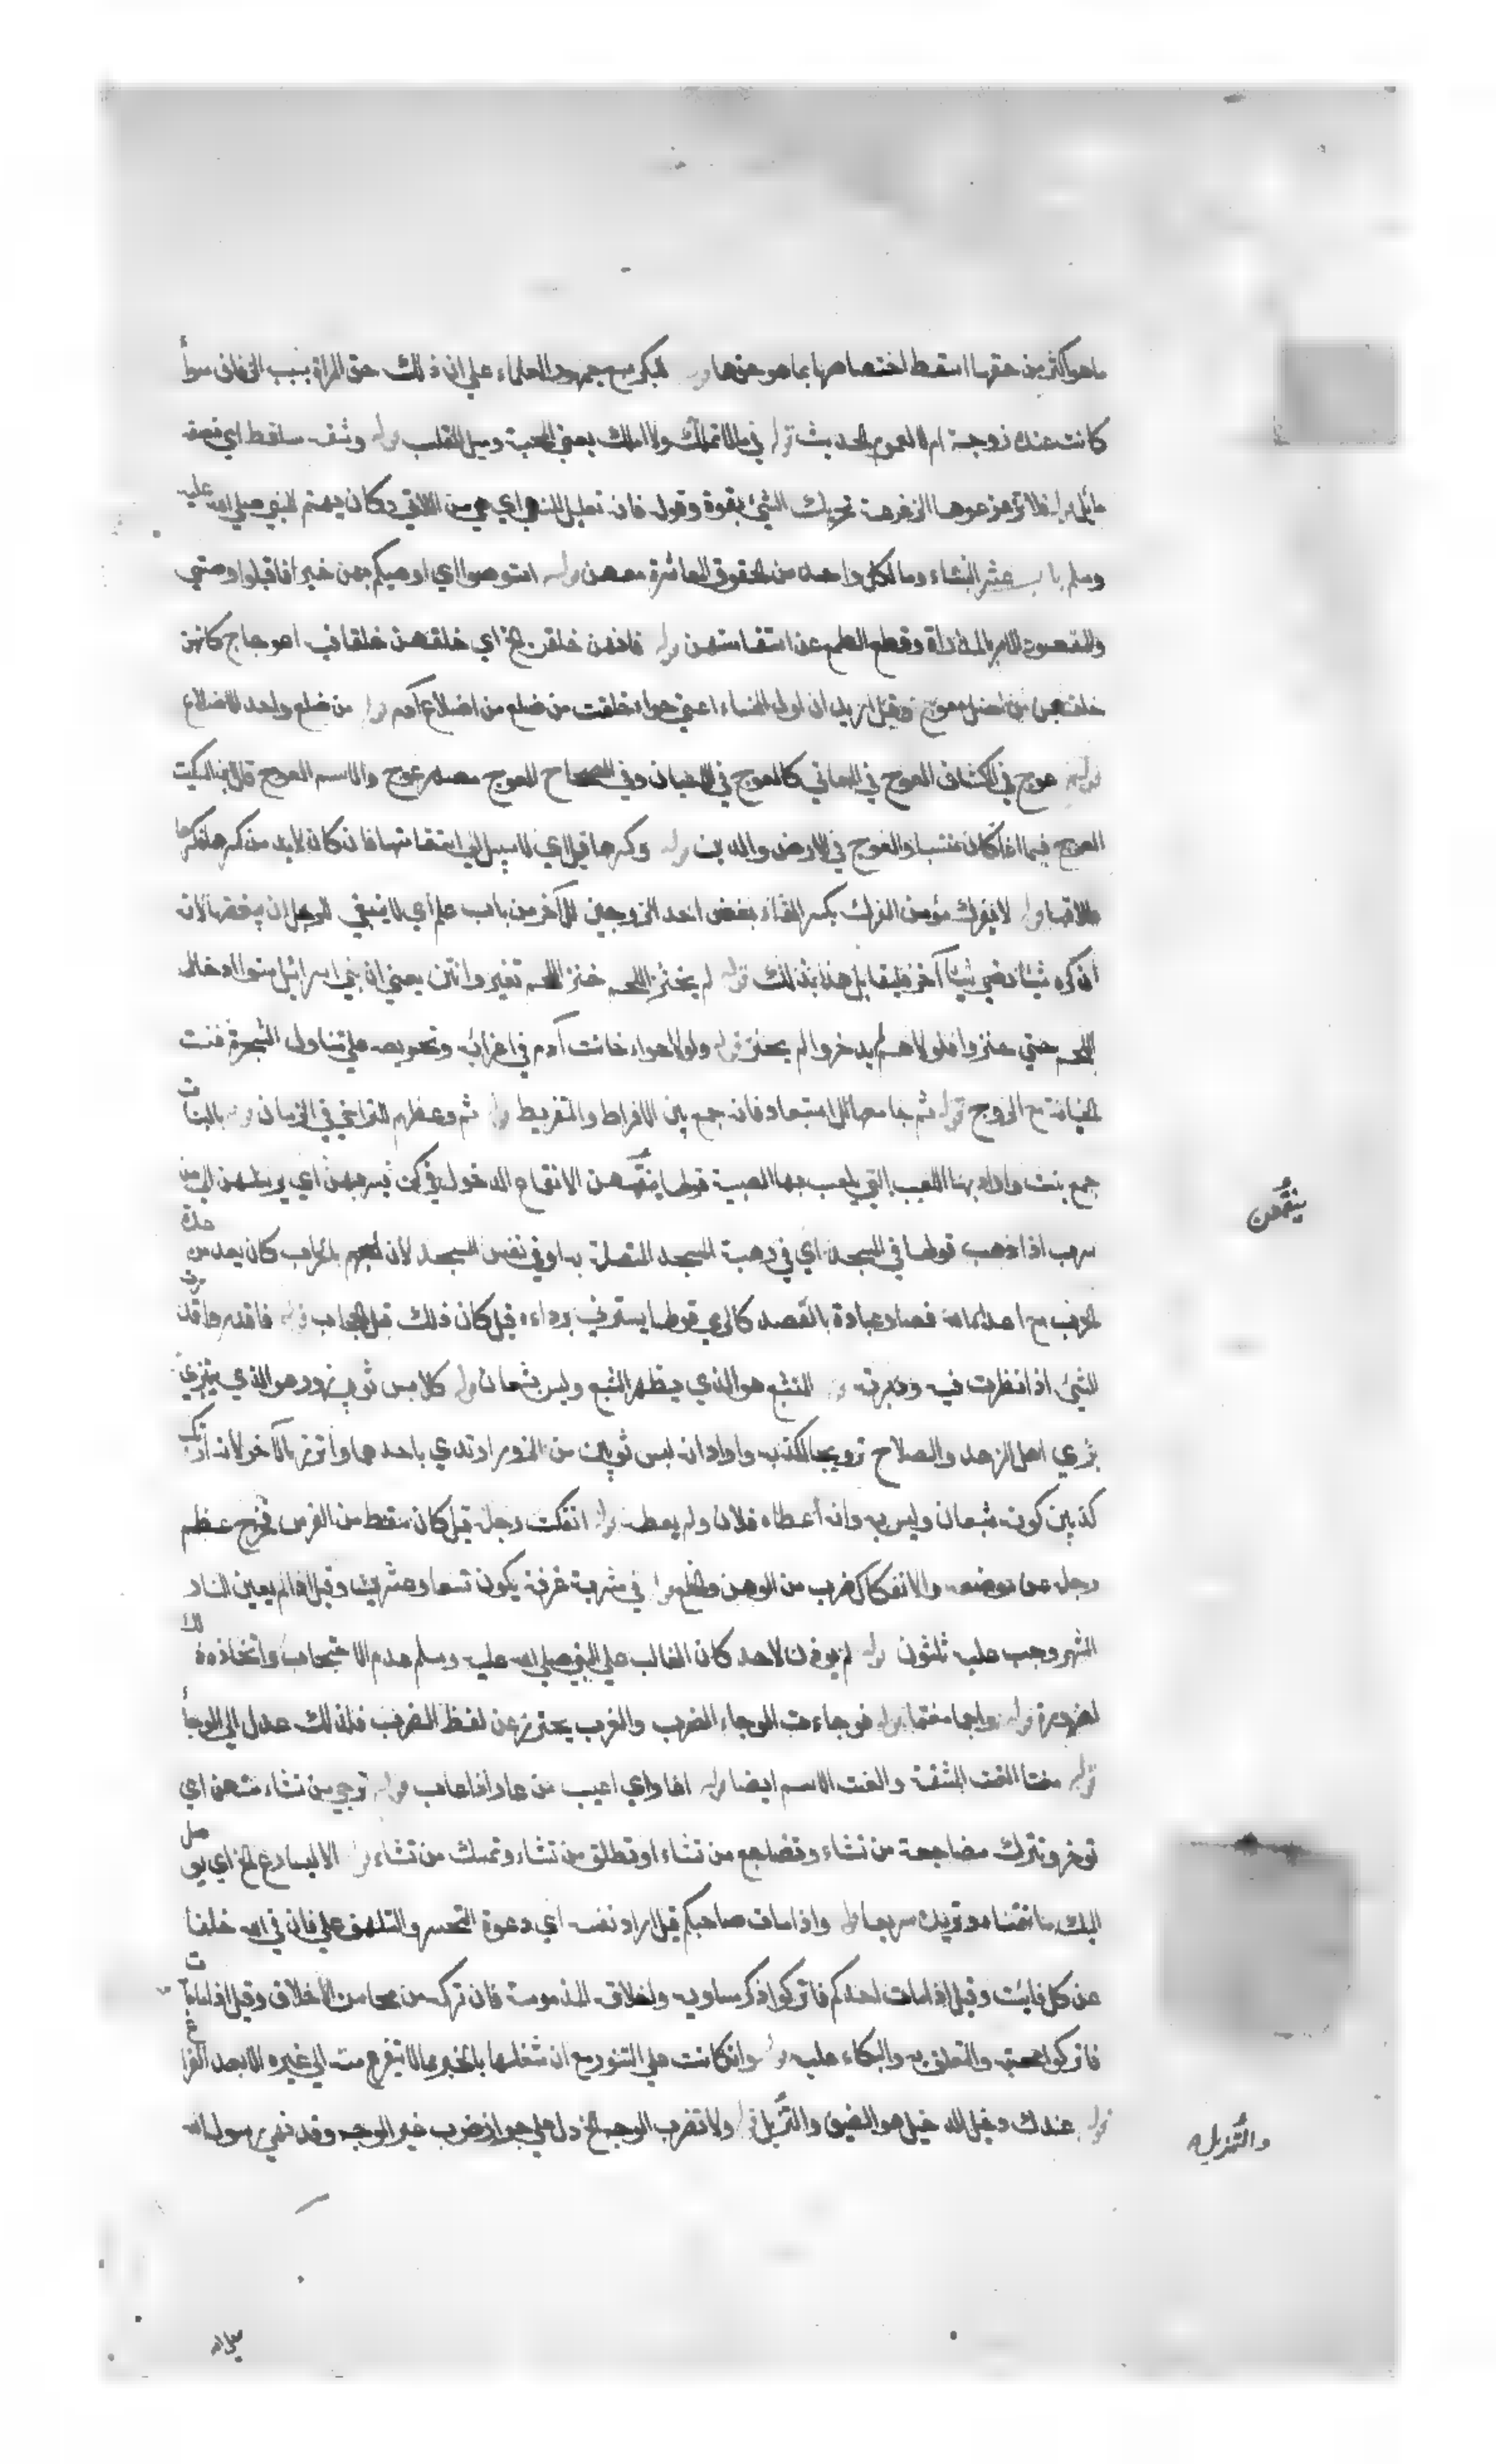 ما هو اكثر من حقها اسقط اختصاصها بما هو حقها قوله للبكر سبع جمهور العلماء علي ان ذلك حق المراة بسبب الزفاف سواء
كانت عنده زوجة ام لا لعموم الحديث قوله فيما لا تملك ولا املك يعني المحبة وميل القلب قوله وشقه ساقط اي نصفه
مائل قوله فلا تزعزعوها الزعزعة تحريك الشئ بقوة وقوله فانه تعليل للنهي اي هي من اللاتي وكان يهتم النبي صلي الله عليه
وسلم باب عشرة النساء وما لكل واحدة من الحقوق المعاشرة معهن قوله استوصوا اي اوصيكم بهن خيرا فاقبلوا وصيتي
والمقصود الامر بالمداراة وقطع الطمع عن استقامتهن قوله فانهن خلقن الخ اي خلقهن خلقا فيه اعوجاج كانهن
خلقن من اصل معوج وقيل اريد ان اول النساء اعني حواء خلقت من ضلع من اضلاع آدم قوله من ضلع واحد الاضلاع
قوله عوج في الكشاف العوج في المعاني كالعوج في الاعيان وفي الصحاح العوج مصدر عوج والاسم العوج قال ابن السكيت
العوج فيما اذا كان منتصبا والعوج في الارض والدين قوله وكسرها قيل اي لا سبيل الي استقامتها فان كان لا بد من كسرها فكسرها
طلاقها قوله لا يفرك مؤمن الفرك بكسر الفاء بغض احد الزوجين للآخر من باب علم اي لا ينبغي للرجل ان يبغضها لانه
ان كره شيئا رضي شيئا آخر فليقابل هذا بذلك قوله لم يخنز اللحم خنز اللحم تغير وانتن يعني ان بني اسرائيل منعوا ادخار
اللحم حتي خنز فلولاهم لم يدخروا لم يخنز قوله ولولا حواء خانت آدم في اغرائه وتحريصه علي تناول الشجرة فسنت
الخيانة مع الزوج قوله ثم جامعها للاستبعاد فانه جمع بين الافراط والتفريط قوله ثم وعظهم للتراخي في الزمان قوله بالبنات
جمع بنت واراد بها اللعب التي يلعب بها الصبية قولها ينقمعن الانقماع الدخول في كن يسربهن اي يرسلهن الي من
سرب اذا ذهب قولها في المسجد اي في رحبة المسجد المتصلة به او في نفس المسجد لان لعبهم بالحراب كان يعد من عدة
الحرب مع اعداء الله فصار عبادة بالقصد كالرمي قولها يسترني بردائه قيل كان ذلك قبل الحجاب قوله فاقدروا قدرت
الشئ اذا نظرت فيه ودبرته قوله المتشبع هو الذي يظهر الشبع وليس بشبعان قوله كلابس ثوبي زور هو الذي يتزيى
بزي اهل الزهد والصلاح ترويجا للكذب واراد ان لبس ثوبين من الزور ارتدي باحدهما واتزر بالآخر لانه ارتكب
كذبين كونه شبعان وليس به وانه اعطاه فلان ولم يعطه قوله انفكت رجله قيل كان سقط من الفرس فخرج عظم
رجله عن موضعه والانفكاك ضرب من الوهن والخلع قوله في مشربة غرفة يكون تسعا وعشرين وقيل اذا لم يعين الناذر
الشهر وجب عليه ثلثون قوله لم يؤذن لاحد كان الغالب علي النبي صلي الله عليه وسلم عدم الاحتجاب واتخاذه ذلك
لضرورة قوله واجما مغتما قوله فوجاءت الوجاء الضرب والعرب يحترز عن لفظ الضرب فلذلك عدل الي الوجأ
قوله معنتا العنت المشقة والعنت الاسم ايضا قوله اغار اي اعيب من غار اذا عاب قوله ترجي من تشاء منهن اي
تؤخر وتترك مضاجعة من تشاء وتضاجع من تشاء او تطلق من تشاء وتمسك من تشاء قوله الا يسارع الخ اي يوصل
اليك ما تتمناه وتريده سريعا قوله واذا مات صاحبكم قيل اراد نفسه اي دعوة التحسر والتلهف علي فان في الله خلفا
عن كل فائت وقيل اذا مات احدكم فاتركوا ذكر مساويه واخلاقه المذمومة فان تركه من محاسن الاخلاق وقيل اذا مات
فاتركوا محبته والتعلق به والبكاء عليه قوله وان كانت علي التنور مع ان شغلها بالخبز مما لا يتفرغ منه الي غيره الا بعد الفراغ
قوله عندك دخيل الدخيل هو الضيف والنزيل قوله ولا تضرب الوجه الخ دل علي جواز ضرب غير الوجه وقد نهي رسول الله
ينقمعن
والنزيل